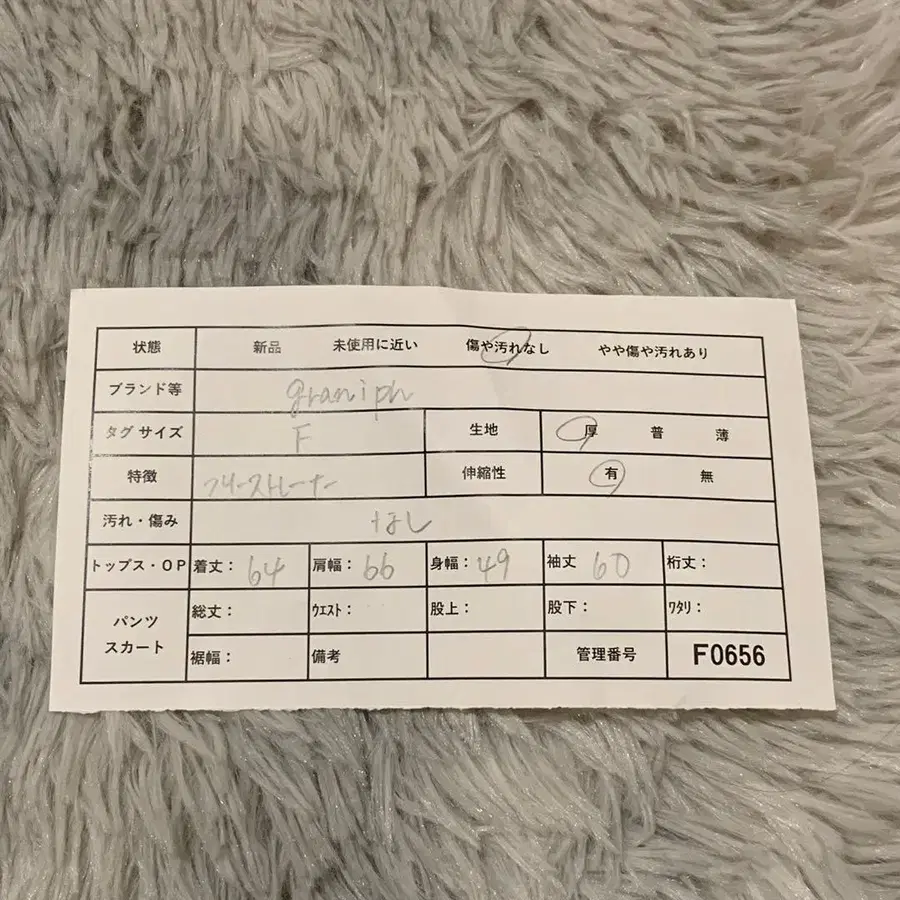 状態 新品 未使用に近い 傷や汚れなし やや傷や汚れあり
ブランド等 graniph
タグ サイズ F 生地 厚 普 薄
特徴 フリーストレーナー 伸縮性 有 無
汚れ・傷み なし
トップス・OP 着丈: 64 肩幅: 66 身幅: 49 袖丈 60 桁丈:
パンツ スカート 総丈: ウエスト: 股上: 股下: ワタリ:
裾幅: 備考 管理番号 F0656